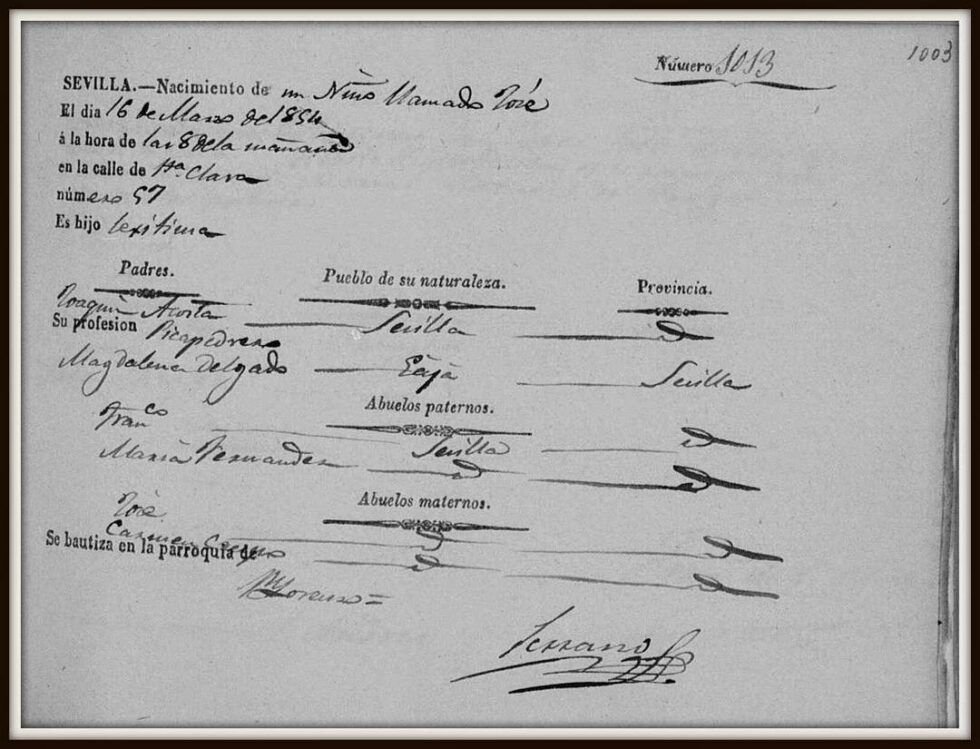 1003
Número 1013
SEVILLA.—Nacimiento de un Niño llamado José
El dia 16 de Marzo del 1854
á la hora de las 8 de la mañana
en la calle de Sta. Clara
número 57
Es hijo lexitimo
Padres. Pueblo de su naturaleza. Provincia.
Joaquin Acosta Sevilla
Su profesion Picapedrero
Magdalena Delgado Sevilla
Abuelos paternos.
Franco Sevilla
Maria Fernandez
Abuelos maternos.
José
Carmen
Se bautiza en la parroquia de
Sn Lorenzo =
Serrano